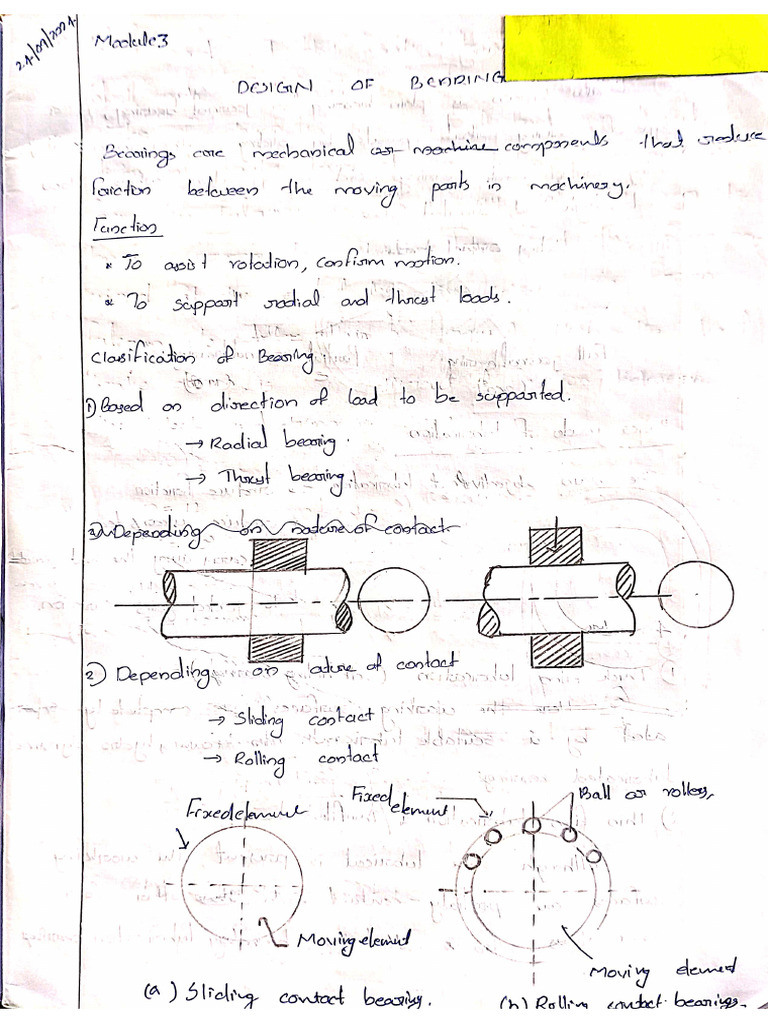 24/09/2024
Module 3
DESIGN OF BEARING
Bearings are mechanical or machine components that reduce
friction between the moving parts in machinery.
Function
* To assist rotation, confirm motion.
* To support radial and thrust loads.
Clasification of Bearing
1) Based on direction of load to be supported.
→ Radial bearing.
→ Thrust bearing.
2) Depending on nature of contact
2) Depending on nature of contact
→ Sliding contact
→ Rolling contact
Fixed element
Fixed element
Ball or rollers,
Moving element
Moving element
(a) Sliding contact bearing.
(b) Rolling contact bearings.